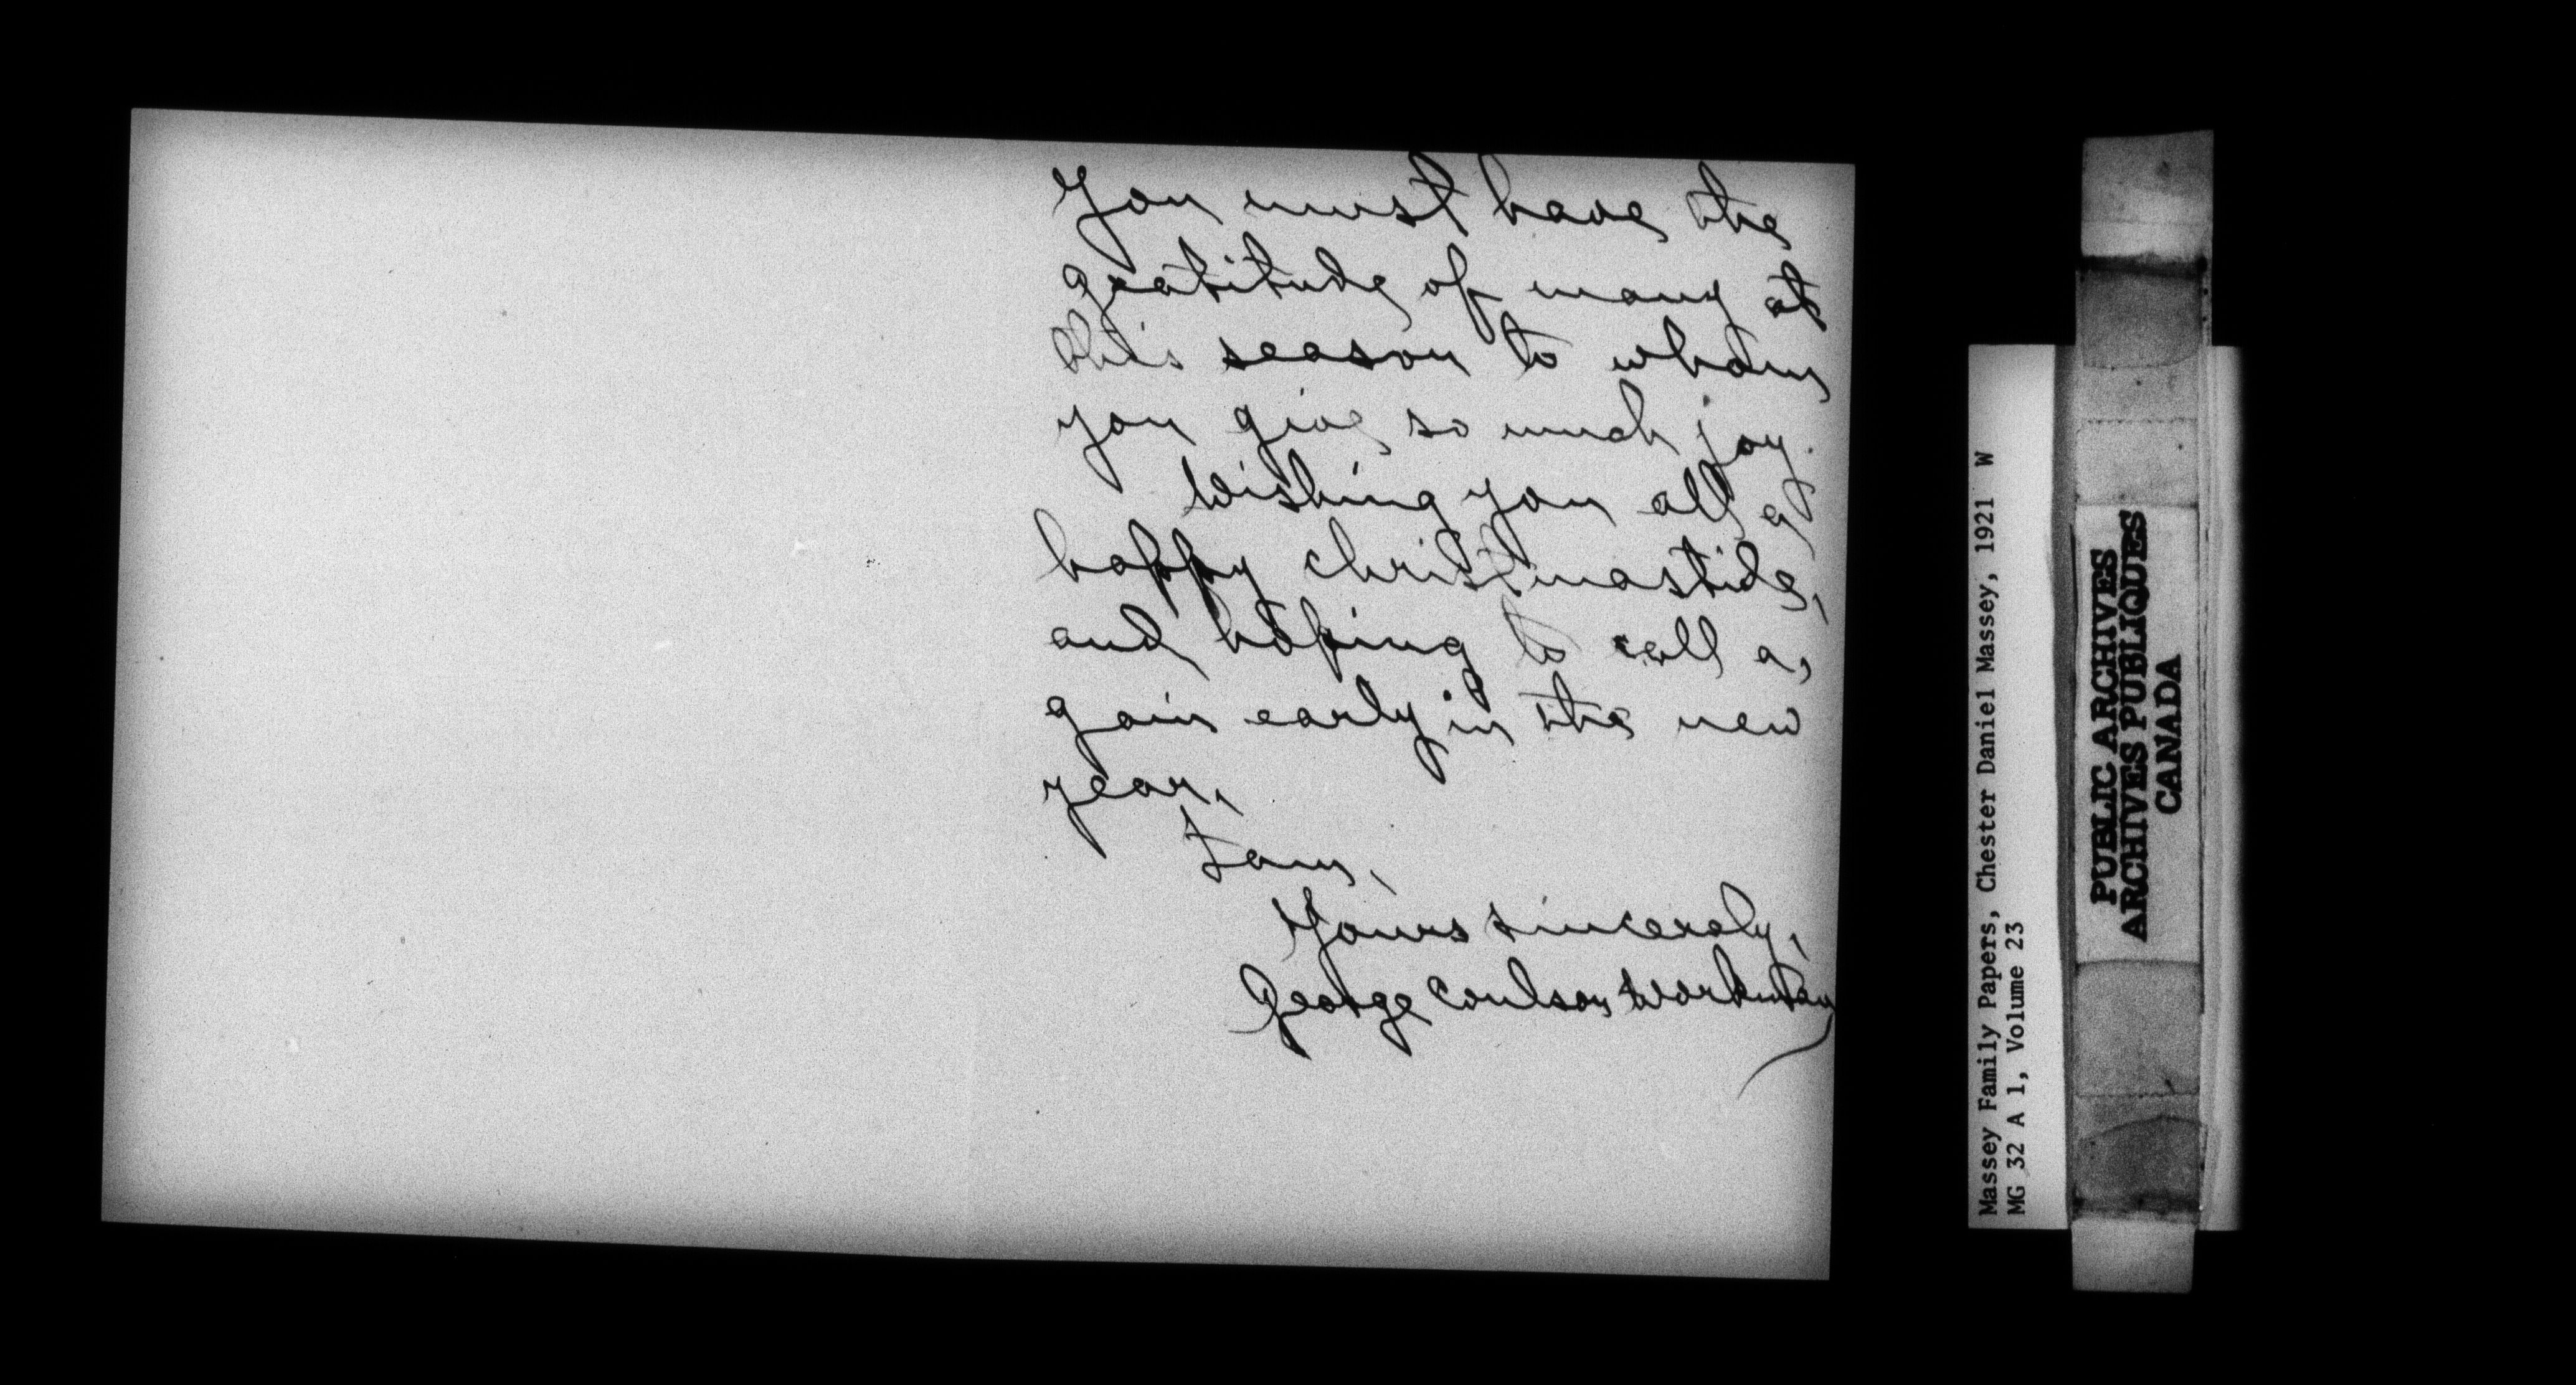 You must have the
gratitude of many at
this season to whom
you give so much joy.
Wishing you all a
happy christmastide,
and hoping to call a,
gain early in the new
year,
I am,
Yours sincerely,
George Coulson Workman
Massey Family Papers, Chester Daniel Massey, 1921 W
MG 32 A 1, Volume 23
PUBLIC ARCHIVES
ARCHIVES PUBLIQUES
CANADA